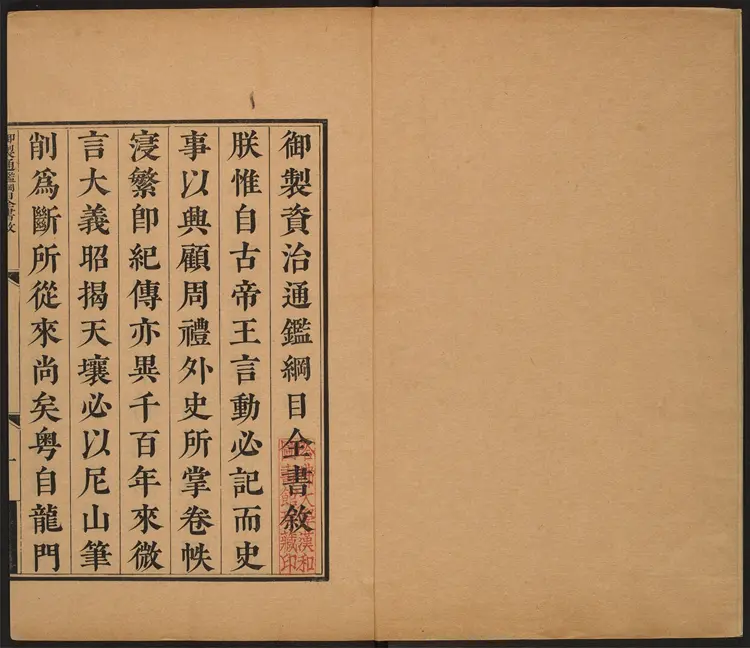 御製資治通鑑綱目全書敘
朕惟自古帝王言動必記而史
事以興顧周禮外史所掌卷帙
寖繁卽紀傳亦異千百年來微
言大義昭揭天壤必以尼山筆
削爲斷所從來尚矣粤自龍門
御製通鑑綱目全書敘
一
哈佛大學漢和
圖書館珍藏印